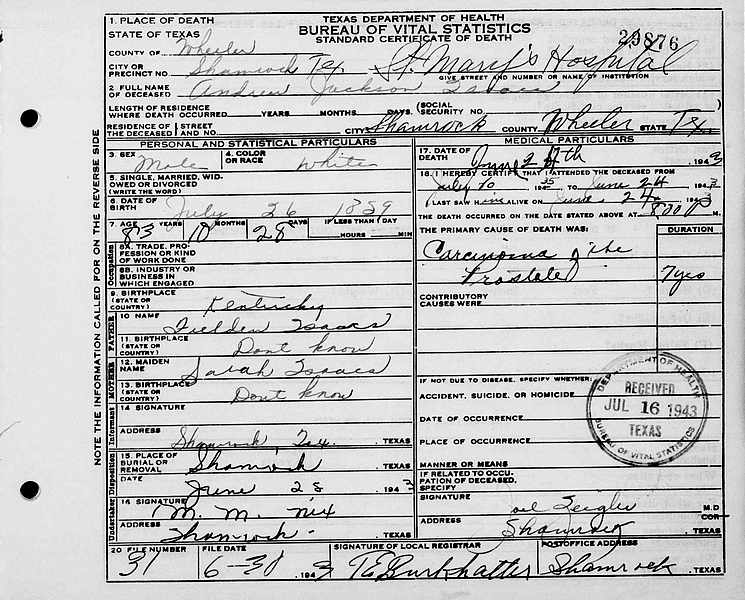 TEXAS DEPARTMENT OF HEALTH
BUREAU OF VITAL STATISTICS
STANDARD CERTIFICATE OF DEATH
23876
1. PLACE OF DEATH
STATE OF TEXAS
COUNTY OF Wheeler
CITY OR PRECINCT NO. Shamrock Tex. St. Mary's Hospital
GIVE STREET AND NUMBER OR NAME OF INSTITUTION
2 FULL NAME OF DECEASED Andrew Jackson Isaacs
LENGTH OF RESIDENCE WHERE DEATH OCCURRED YEARS MONTHS DAYS. (SOCIAL SECURITY NO.
RESIDENCE OF THE DECEASED (STREET AND NO. CITY Shamrock COUNTY Wheeler STATE Tex.
NOTE THE INFORMATION CALLED FOR ON THE REVERSE SIDE
PERSONAL AND STATISTICAL PARTICULARS
3. SEX Male 4. COLOR OR RACE White
5. SINGLE, MARRIED, WIDOWED OR DIVORCED (WRITE THE WORD)
6 DATE OF BIRTH July 26 1859
7. AGE YEARS MONTHS DAYS IF LESS THAN 1 DAY
83 10 28 HOURS MIN
Occupation
8A. TRADE, PROFESSION OR KIND OF WORK DONE
8B. INDUSTRY OR BUSINESS IN WHICH ENGAGED
9. BIRTHPLACE (STATE OR COUNTRY) Kentucky
FATHER
10 NAME Fielden Isaacs
11. BIRTHPLACE (STATE OR COUNTRY) Dont know
MOTHER
12. MAIDEN NAME Sarah Isaacs
13. BIRTHPLACE (STATE OR COUNTRY) Dont know
Informant
14 SIGNATURE
ADDRESS Shamrock, Tex. . TEXAS
Disposition
15. PLACE OF BURIAL OR REMOVAL Shamrock . TEXAS
DATE June 28 1943
Undertaker
16 SIGNATURE M. M. Nix
ADDRESS Shamrock - TEXAS
MEDICAL PARTICULARS
17. DATE OF DEATH June 24th 1943
18. I HEREBY CERTIFY THAT I ATTENDED THE DECEASED FROM
July 10 1935 TO June 24 1943
I LAST SAW HIM ALIVE ON June 24 1943
THE DEATH OCCURRED ON THE DATE STATED ABOVE AT 8:00 P M.
THE PRIMARY CAUSE OF DEATH WAS: DURATION
Carcinoma of the
Prostate 7 yrs
CONTRIBUTORY CAUSES WERE
IF NOT DUE TO DISEASE, SPECIFY WHETHER:
ACCIDENT, SUICIDE, OR HOMICIDE
DATE OF OCCURRENCE
PLACE OF OCCURRENCE
MANNER OR MEANS
IF RELATED TO OCCUPATION OF DECEASED, SPECIFY
DEPARTMENT OF HEALTH
RECEIVED
JUL 16 1943
TEXAS
BUREAU OF VITAL STATISTICS
SIGNATURE Zeigler M.D
COR
ADDRESS Shamrock TEXAS
20 FILE NUMBER FILE DATE SIGNATURE OF LOCAL REGISTRAR POSTOFFICE ADDRESS
31 6-30 1943 Burkhalter Shamrock TEXAS